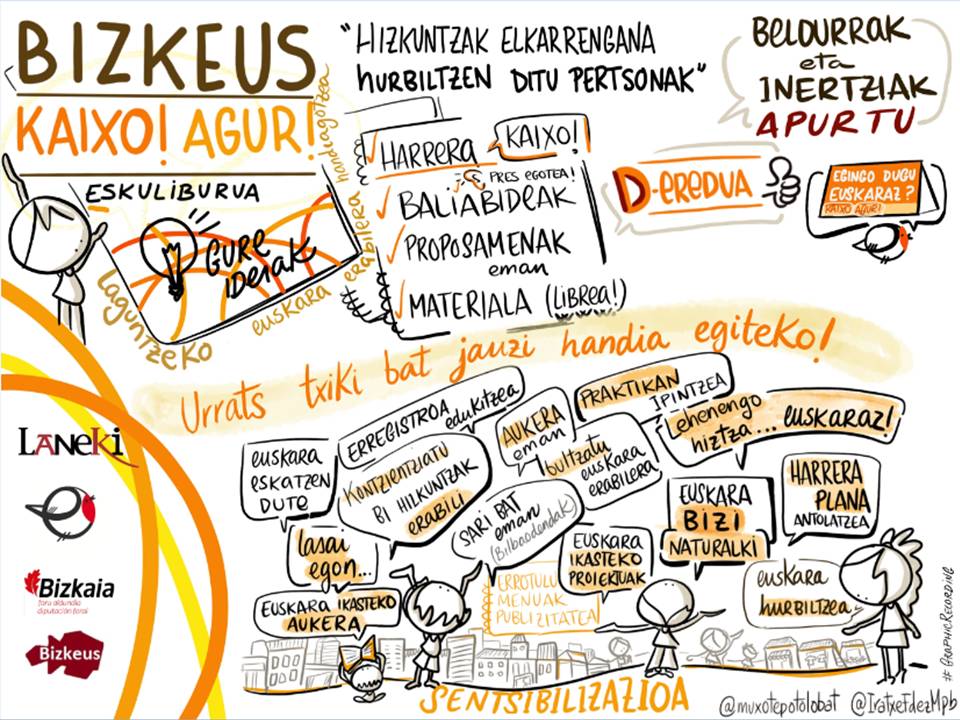 BIZKEUS
KAIXO! AGUR!
ESKULIBURUA
GURE
IDEIAK
Laguntzeko
euskara
erabilera
handiagotzea
"HIZKUNTZAK ELKARRENGANA
HURBILTZEN DITU PERTSONAK"
BELDURRAK
eta
INERTZIAK
APURTU
HARRERA
KAIXO!
PRES EGOTEA!
BALIABIDEAK
PROPOSAMENAK
eman
MATERIALA (LIBREA!)
D-EREDUA
EGINGO DUGU
EUSKARAZ?
KAIXO AGUR!
Urrats txiki bat jauzi handia egiteko!
LANEKI
Bizkaia
foru aldundia
diputación foral
Bizkeus
euskara
ESKATZEN
DUTE
ERREGISTROA edukitzea
KONTZIENTZIATU
BI HILKUNTZAK
ERABILI
AUKERA
eman
PRAKTIKAN
IPINTZEA
bultzatu
euskara
ERABILERA
ehenengo
hiztza... euskaraz!
SARI BAT
eman
(Bilbaodendak)
EUSKARA
BIZI
NATURALKI
HARRERA
PLANA
ANTOLATZEA
lasai
egon...
EUSKARA
IKASTEKO
PROIEKTUAK
EUSKARA IKASTEKO
AUKERA
ERROTULU
MENUAK
PUBLIZITATEA
euskara
hurbiltzea
SENTSIBILIZAZIOA
@muxotepotolobat @IratxeFdezMpb
# GRAPHICRECORDING